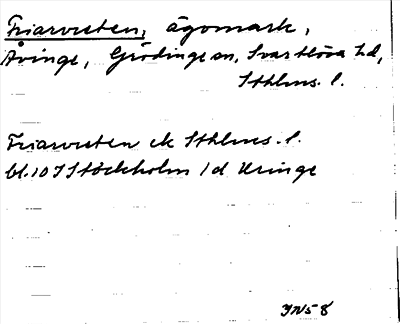 Friarvreten, ägomark,
Åvinge, Grödinge sn, Svartlösa hd,
Sthlms. l.
Friarvreten ek Sthlms. l.
bl. 107 Stockholm 1d Uringe